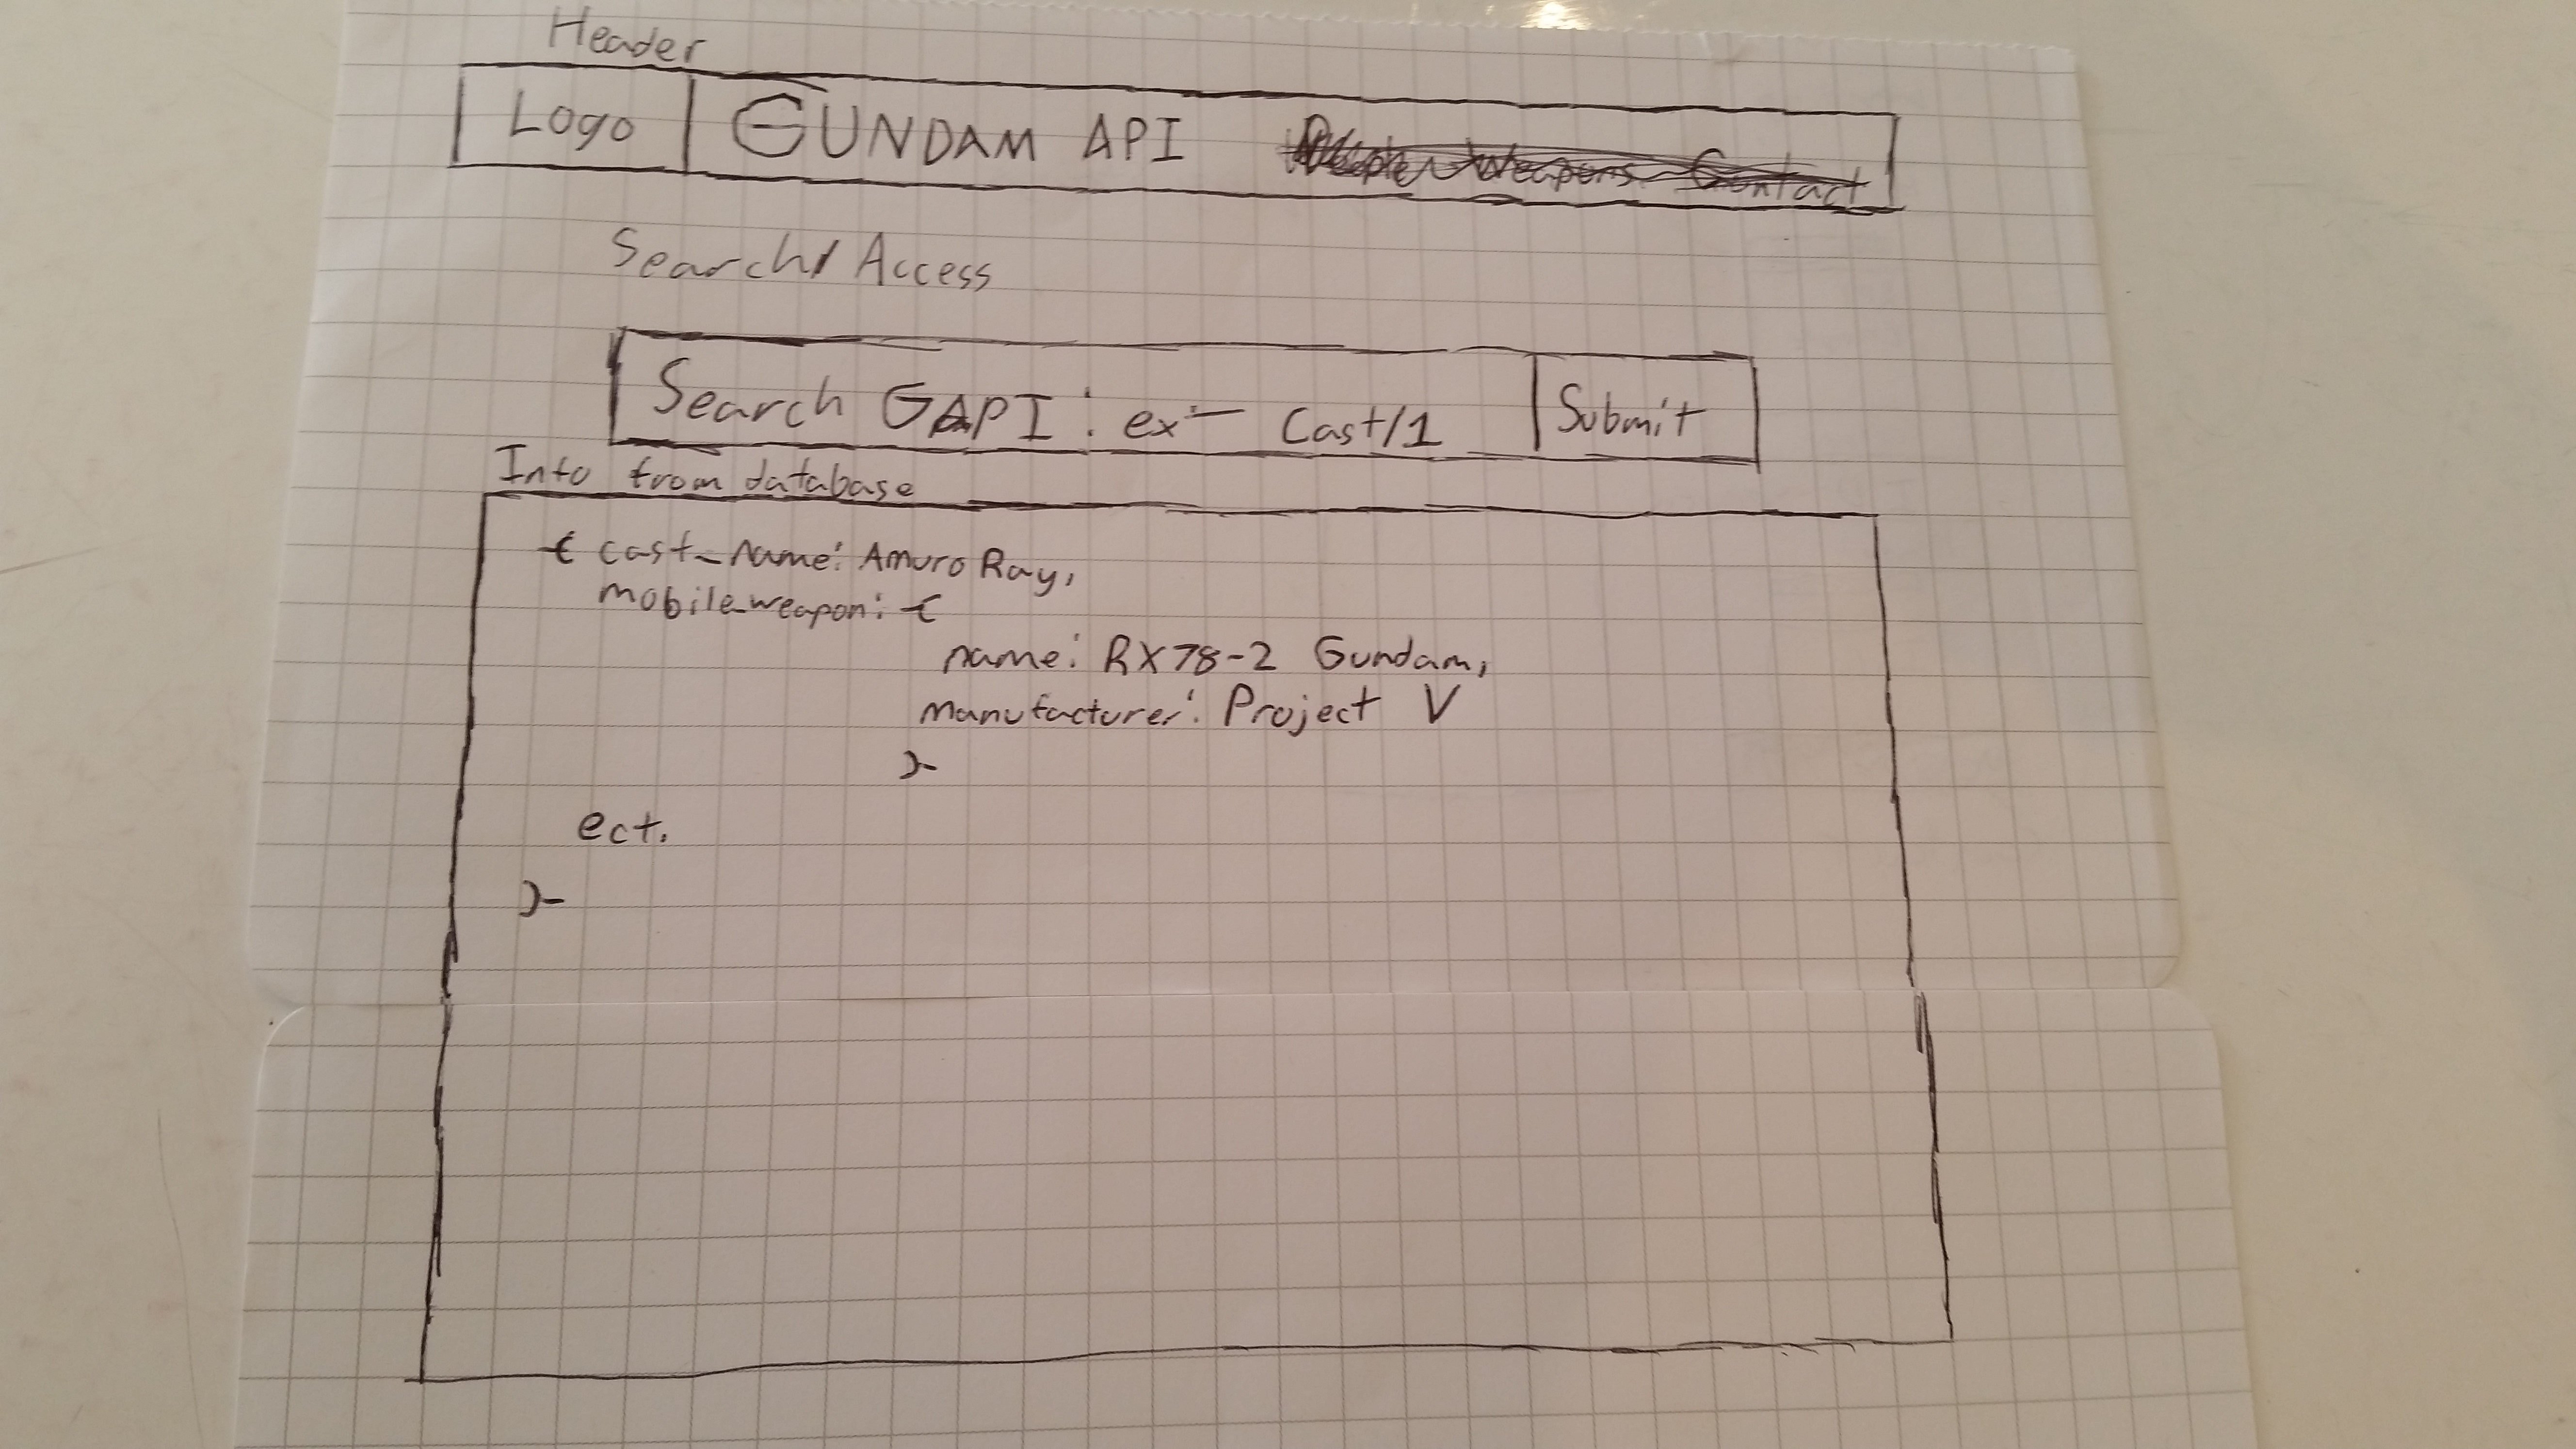 Header
Logo GUNDAM API People Weapons Contact
Search/Access
Search GAPI: ex- Cast/1 Submit
Info from database
{ cast_name: Amuro Ray,
mobile_weapon: {
name: RX78-2 Gundam,
manufacturer: Project V
}
ect.
}